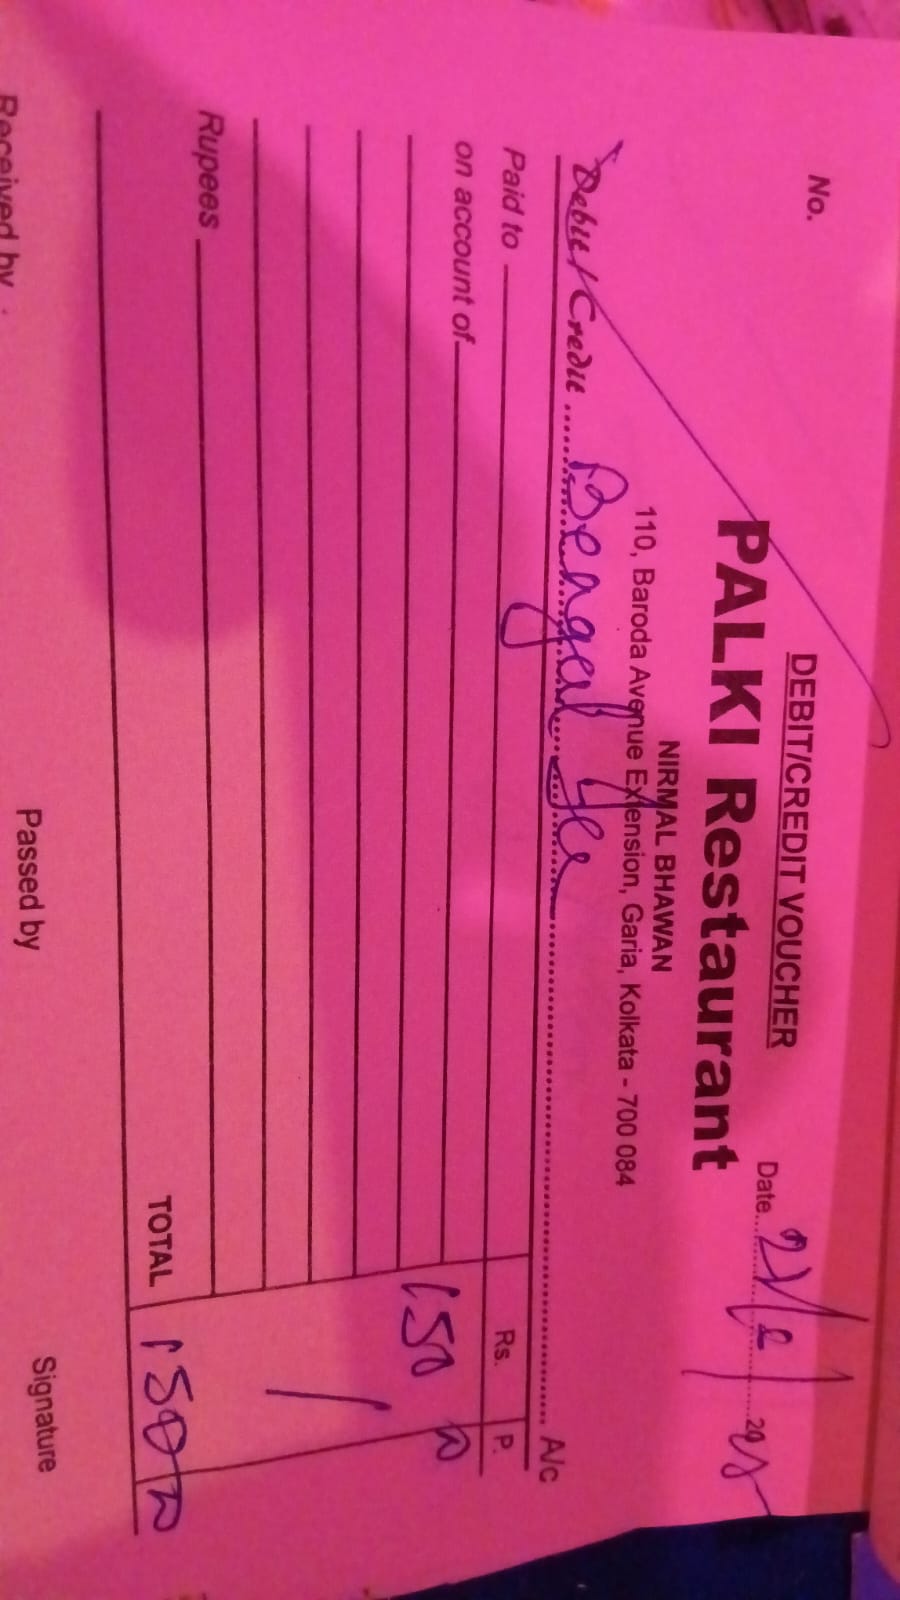 DEBIT/CREDIT VOUCHER
No.
PALKI Restaurant
Date
NIRMAL BHAWAN
110, Baroda Avenue Extension, Garia, Kolkata - 700 084
Debit / Credit .......... Bengal .......... A/c
Paid to
Rs. P.
on account of
150
Rupees
TOTAL 150
Received by
Passed by
Signature